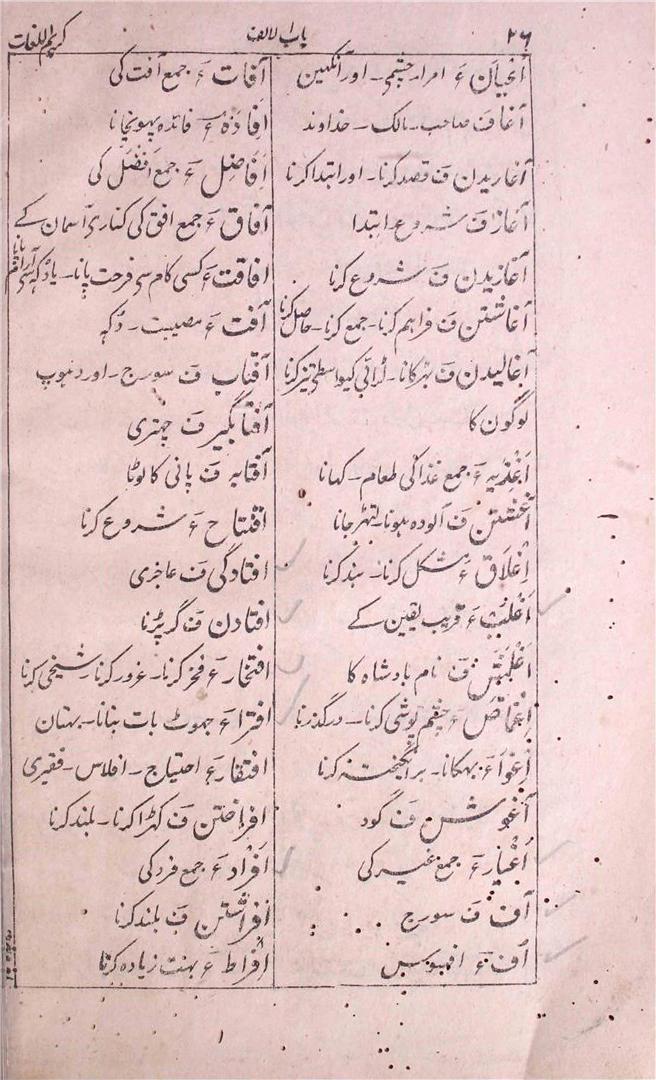 ۲۶
باب الالف
کریم اللغات
اعیان ع امراء چشمی۔ اور آنکھین
آغا ف صاحب۔ مالک۔ خداوند
آغاریدن ف قصد کرنا۔ اور ابتدا کرنا
آغاز ف شروع۔ ابتدا
آغازیدن ف شروع کرنا
آغاشتن ف فراہم کرنا۔ جمع کرنا۔ حاصل کرنا
آغالیدن ف بہڑکانا۔ لڑائی کیواسطی تیز کرنا
لوگون کا
اغذیہ ع جمع غذا کی طعام۔ کہانا
آغشتن ف آلودہ ہونا۔ لتہڑ جانا
اغلاق ع مشکل کرنا۔ بند کرنا
اغلب ع قریب یقین کے
ف نام بادشاہ کا
اغماض ع چشم پوشی کرنا۔ درگذرنا
اغواء ع بہکانا۔ برانگیختہ کرنا
آغوش ف گود
اغیار ع جمع غیر کی
آف ف سورج
اف ع افسوس
آفات ع جمع آفت کی
افادہ ع فائدہ پہونچانا
افاضل ع جمع افضل کی
آفاق ع جمع افق کی کناری آسمان کے
افاقت ع کسی کام سی فرحت پانا۔ یا دکہ سی آرام پانا
آفت ع مصیبت۔ دکہ
آفتاب ف سورج۔ اور دہوپ
آفتابگیر ف چہتری
آفتابہ ف پانی کا لوٹا
افتتاح ع شروع کرنا
افتادگی ف عاجزی
افتادن ف گر پڑنا
افتخار ع فخر کرنا۔ غرور کرنا۔ شیخی کرنا
افتراء ع جہوٹ بات بنانا۔ بہتان
افتقار ع احتیاج۔ افلاس۔ فقیری
افراختن ف کہڑا کرنا۔ بلند کرنا
افراد ع جمع فرد کی
افراشتن ف بلند کرنا
افراط ع بہت زیادہ کرنا